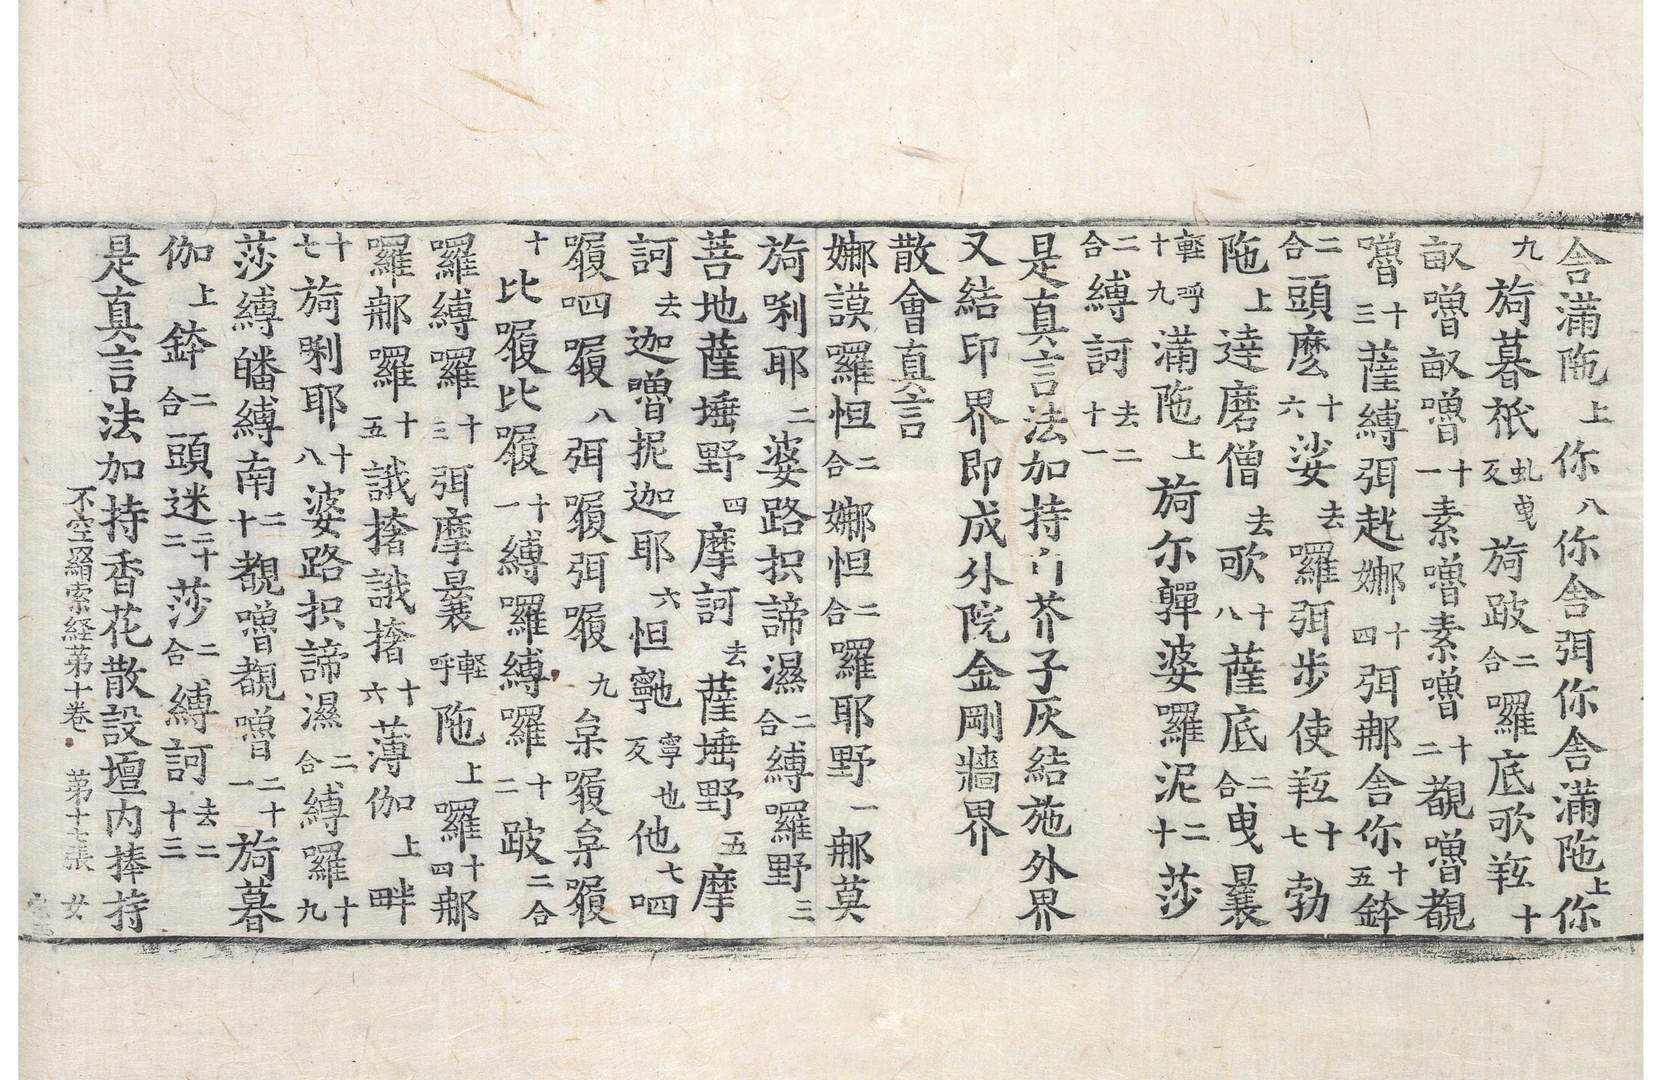 舎滿陁上你八你舎弭你舎滿陁上你
九旖暮祇虬曳反旖跛二合囉底歌䍃十
㕟嚕㕟嚕十一素嚕素嚕十二覩嚕覩
嚕十三薩縛弭赴娜十四弭郍舎你十五鉢
二合頭麽十六娑去囉弭步使䍃十七勃
陁上達磨僧去歌十八薩底二合曳曩
輕呼十九滿陁上旖尓嚲婆囉泥二十莎
二合縛訶去二十一
是真言法加持白芥子灰結施外界
又結印界即成外院金剛牆界
散會真言
娜謨囉怛二合娜怛二合囉耶野一郍莫
旖唎耶二婆路抧諦濕二合縛囉野三
菩地薩埵野四摩訶去薩埵野五摩
訶去迦嚕抳迦耶六怛軃寧也反他七呬
履呬履八弭履弭履九㭐履㭐履
十比履比履十一縛囉縛囉十二跛二合
囉縛囉十三弭摩曩輕呼陁上囉十四郍
囉郍囉十五誐撦誐撦十六薄伽上畔
十七旖唎耶十八婆路抧諦濕二合縛囉十九
莎縛皤縛南二十覩嚕覩嚕二十一旖暮
伽上鉢二合頭迷二十二莎二合縛訶去二十三
是真言法加持香花散設壇内捧持
不空羂索経苐十卷 苐十七張 女